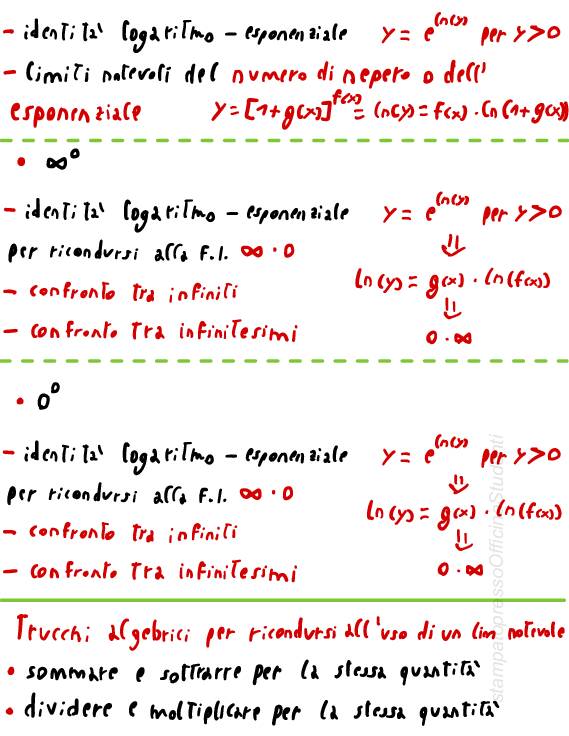 - identità logaritmo - esponenziale y = e^ln(y) per y>0
- limiti notevoli del numero di nepero o dell'
esponenziale y=[1+g(x)]^f(x) = ln(y) = f(x) · ln(1+g(x))
• ∞^0
- identità logaritmo - esponenziale y = e^ln(y) per y>0
per ricondursi alla F.I. ∞ · 0 ⇓
- confronto tra infiniti ln(y) = g(x) · ln(f(x))
⇓
- confronto tra infinitesimi 0 · ∞
• 0^0
- identità logaritmo - esponenziale y = e^ln(y) per y>0
per ricondursi alla F.I. ∞ · 0 ⇓
ln(y) = g(x) · ln(f(x))
- confronto tra infiniti ⇓
- confronto tra infinitesimi 0 · ∞
Trucchi algebrici per ricondursi all'uso di un lim notevole
• sommare e sottrarre per la stessa quantità
• dividere e moltiplicare per la stessa quantità
stampatopressoOfficineStudenti